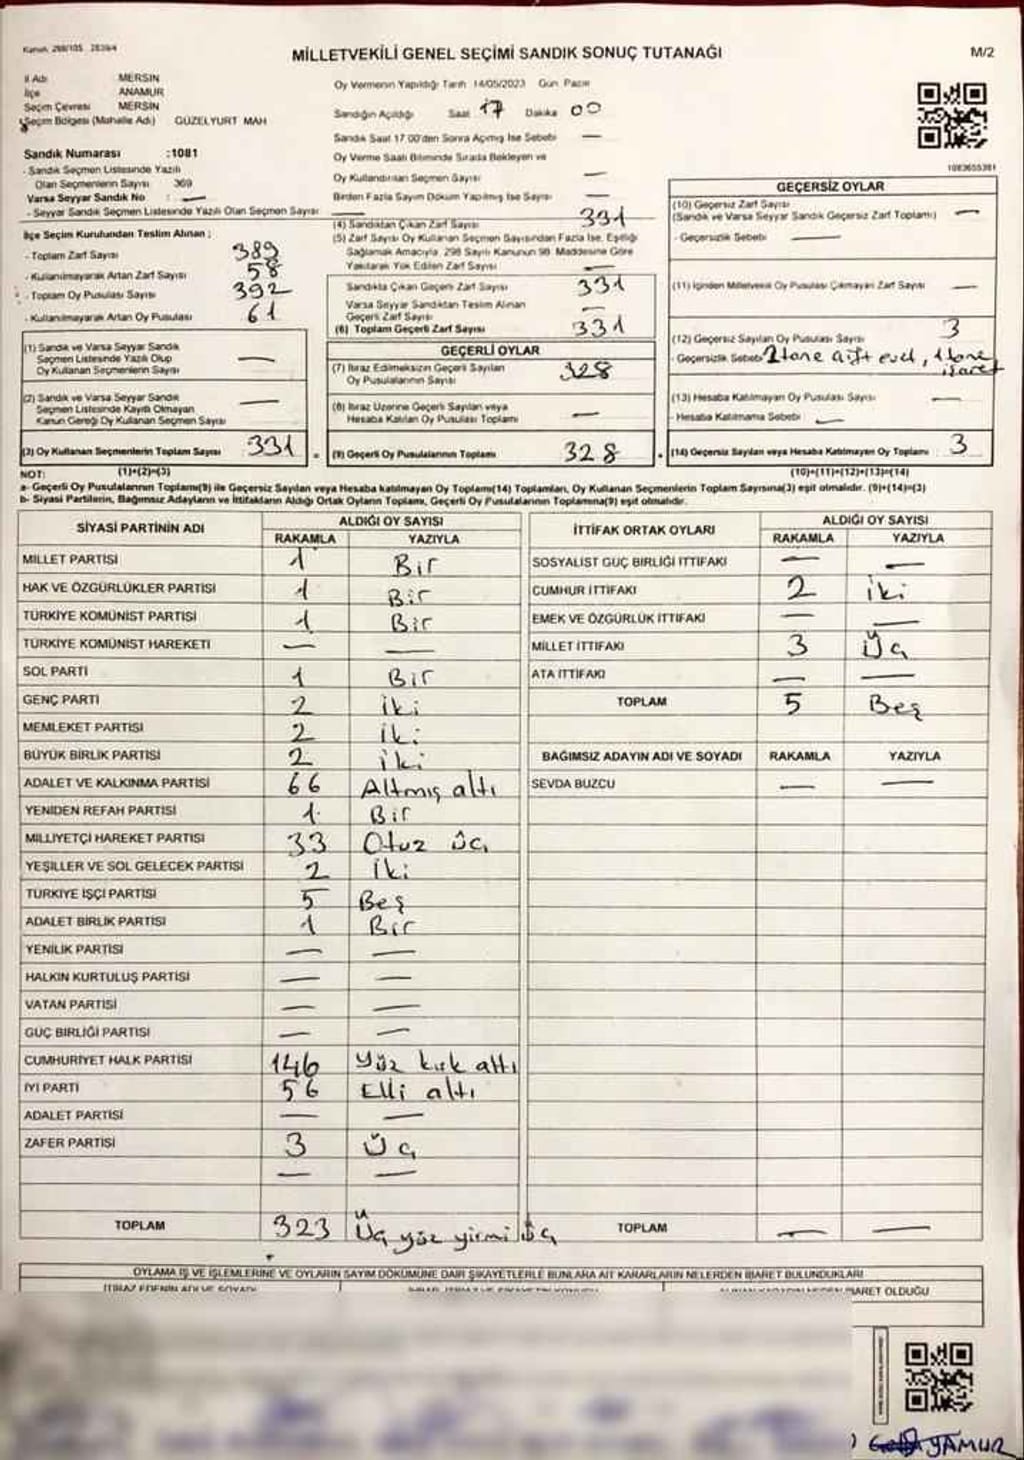 Kanun. 298/105 2839/4
MİLLETVEKİLİ GENEL SEÇİMİ SANDIK SONUÇ TUTANAĞI
M/2
İl Adı MERSİN
İlçe ANAMUR
Seçim Çevresi MERSİN
Seçim Bölgesi (Mahalle Adı) GÜZELYURT MAH
Sandık Numarası :1081
- Sandık Seçmen Listesinde Yazılı
Olan Seçmenlerin Sayısı 369
Varsa Seyyar Sandık No : —
- Seyyar Sandık Seçmen Listesinde Yazılı Olan Seçmen Sayısı —
İlçe Seçim Kurulundan Teslim Alınan :
- Toplam Zarf Sayısı 389
- Kullanılmayarak Artan Zarf Sayısı 58
- Toplam Oy Pusulası Sayısı 392
- Kullanılmayarak Artan Oy Pusulası 61
(1) Sandık ve Varsa Seyyar Sandık
Seçmen Listesinde Yazılı Olup
Oy Kullanan Seçmenlerin Sayısı —
(2) Sandık ve Varsa Seyyar Sandık
Seçmen Listesinde Kayıtlı Olmayan
Kanun Gereği Oy Kullanan Seçmen Sayısı —
(3) Oy Kullanan Seçmenlerin Toplam Sayısı 331
Oy Vermenin Yapıldığı Tarih 14/05/2023 Gün Pazar
Sandığın Açıldığı Saat 17 Dakika 00
Sandık Saat 17.00'den Sonra Açılmış İse Sebebi —
Oy Verme Saati Bitiminde Sırada Bekleyen ve
Oy Kullandırılan Seçmen Sayısı —
Birden Fazla Sayım Döküm Yapılmış İse Sayısı —
(4) Sandıktan Çıkan Zarf Sayısı 331
(5) Zarf Sayısı Oy Kullanan Seçmen Sayısından Fazla İse, Eşitliği
Sağlamak Amacıyla, 298 Sayılı Kanunun 98. Maddesine Göre
Yakılarak Yok Edilen Zarf Sayısı —
Sandıkta Çıkan Geçerli Zarf Sayısı 331
Varsa Seyyar Sandıktan Teslim Alınan
Geçerli Zarf Sayısı —
(6) Toplam Geçerli Zarf Sayısı 331
GEÇERLİ OYLAR
(7) İtiraz Edilmeksizin Geçerli Sayılan
Oy Pusulalarının Sayısı 328
(8) İtiraz Üzerine Geçerli Sayılan veya
Hesaba Katılan Oy Pusulası Toplamı —
(9) Geçerli Oy Pusulalarının Toplamı 328
1083655381
GEÇERSİZ OYLAR
(10) Geçersiz Zarf Sayısı
(Sandık ve Varsa Seyyar Sandık Geçersiz Zarf Toplamı) —
- Geçersizlik Sebebi —
(11) İçinden Milletvekili Oy Pusulası Çıkmayan Zarf Sayısı —
(12) Geçersiz Sayılan Oy Pusulası Sayısı 3
- Geçersizlik Sebebi 2 tane çift evet, 1 tane
işaret
(13) Hesaba Katılmayan Oy Pusulası Sayısı —
- Hesaba Katılmama Sebebi —
(14) Geçersiz Sayılan veya Hesaba Katılmayan Oy Toplamı 3
NOT: (1)+(2)=(3) (10)+(11)+(12)+(13)=(14)
a- Geçerli Oy Pusulalarının Toplamı(9) ile Geçersiz Sayılan veya Hesaba katılmayan Oy Toplamı(14) Toplamları, Oy Kullanan Seçmenlerin Toplam Sayısına(3) eşit olmalıdır. (9)+(14)=(3)
b- Siyasi Partilerin, Bağımsız Adayların ve İttifakların Aldığı Ortak Oyların Toplamı, Geçerli Oy Pusulalarının Toplamına(9) eşit olmalıdır.
SİYASİ PARTİNİN ADI ALDIĞI OY SAYISI
RAKAMLA YAZIYLA
MİLLET PARTİSİ 1 Bir
HAK VE ÖZGÜRLÜKLER PARTİSİ 1 Bir
TÜRKİYE KOMÜNİST PARTİSİ 1 Bir
TÜRKİYE KOMÜNİST HAREKETİ — —
SOL PARTİ 1 Bir
GENÇ PARTİ 2 iki
MEMLEKET PARTİSİ 2 iki
BÜYÜK BİRLİK PARTİSİ 2 iki
ADALET VE KALKINMA PARTİSİ 66 Altmış altı
YENİDEN REFAH PARTİSİ 1 Bir
MİLLİYETÇİ HAREKET PARTİSİ 33 Otuz üç
YEŞİLLER VE SOL GELECEK PARTİSİ 2 iki
TÜRKİYE İŞÇİ PARTİSİ 5 Beş
ADALET BİRLİK PARTİSİ 1 Bir
YENİLİK PARTİSİ — —
HALKIN KURTULUŞ PARTİSİ — —
VATAN PARTİSİ — —
GÜÇ BİRLİĞİ PARTİSİ — —
CUMHURİYET HALK PARTİSİ 146 Yüz kırk altı
İYİ PARTİ 56 Elli altı
ADALET PARTİSİ — —
ZAFER PARTİSİ 3 Üç
— —
TOPLAM 323 Üç yüz yirmi üç
İTTİFAK ORTAK OYLARI ALDIĞI OY SAYISI
RAKAMLA YAZIYLA
SOSYALİST GÜÇ BİRLİĞİ İTTİFAKI — —
CUMHUR İTTİFAKI 2 iki
EMEK VE ÖZGÜRLÜK İTTİFAKI — —
MİLLET İTTİFAKI 3 Üç
ATA İTTİFAKI — —
TOPLAM 5 Beş
BAĞIMSIZ ADAYIN ADI VE SOYADI RAKAMLA YAZIYLA
SEVDA BUZCU — —
TOPLAM — —
OYLAMA İŞ VE İŞLEMLERİNE VE OYLARIN SAYIM DÖKÜMÜNE DAİR ŞİKAYETLERLE BUNLARA AİT KARARLARIN NELERDEN İBARET BULUNDUKLARI
İTİRAZ EDENİN ADI VE SOYADI
İBARET OLDUĞU
YAMUR